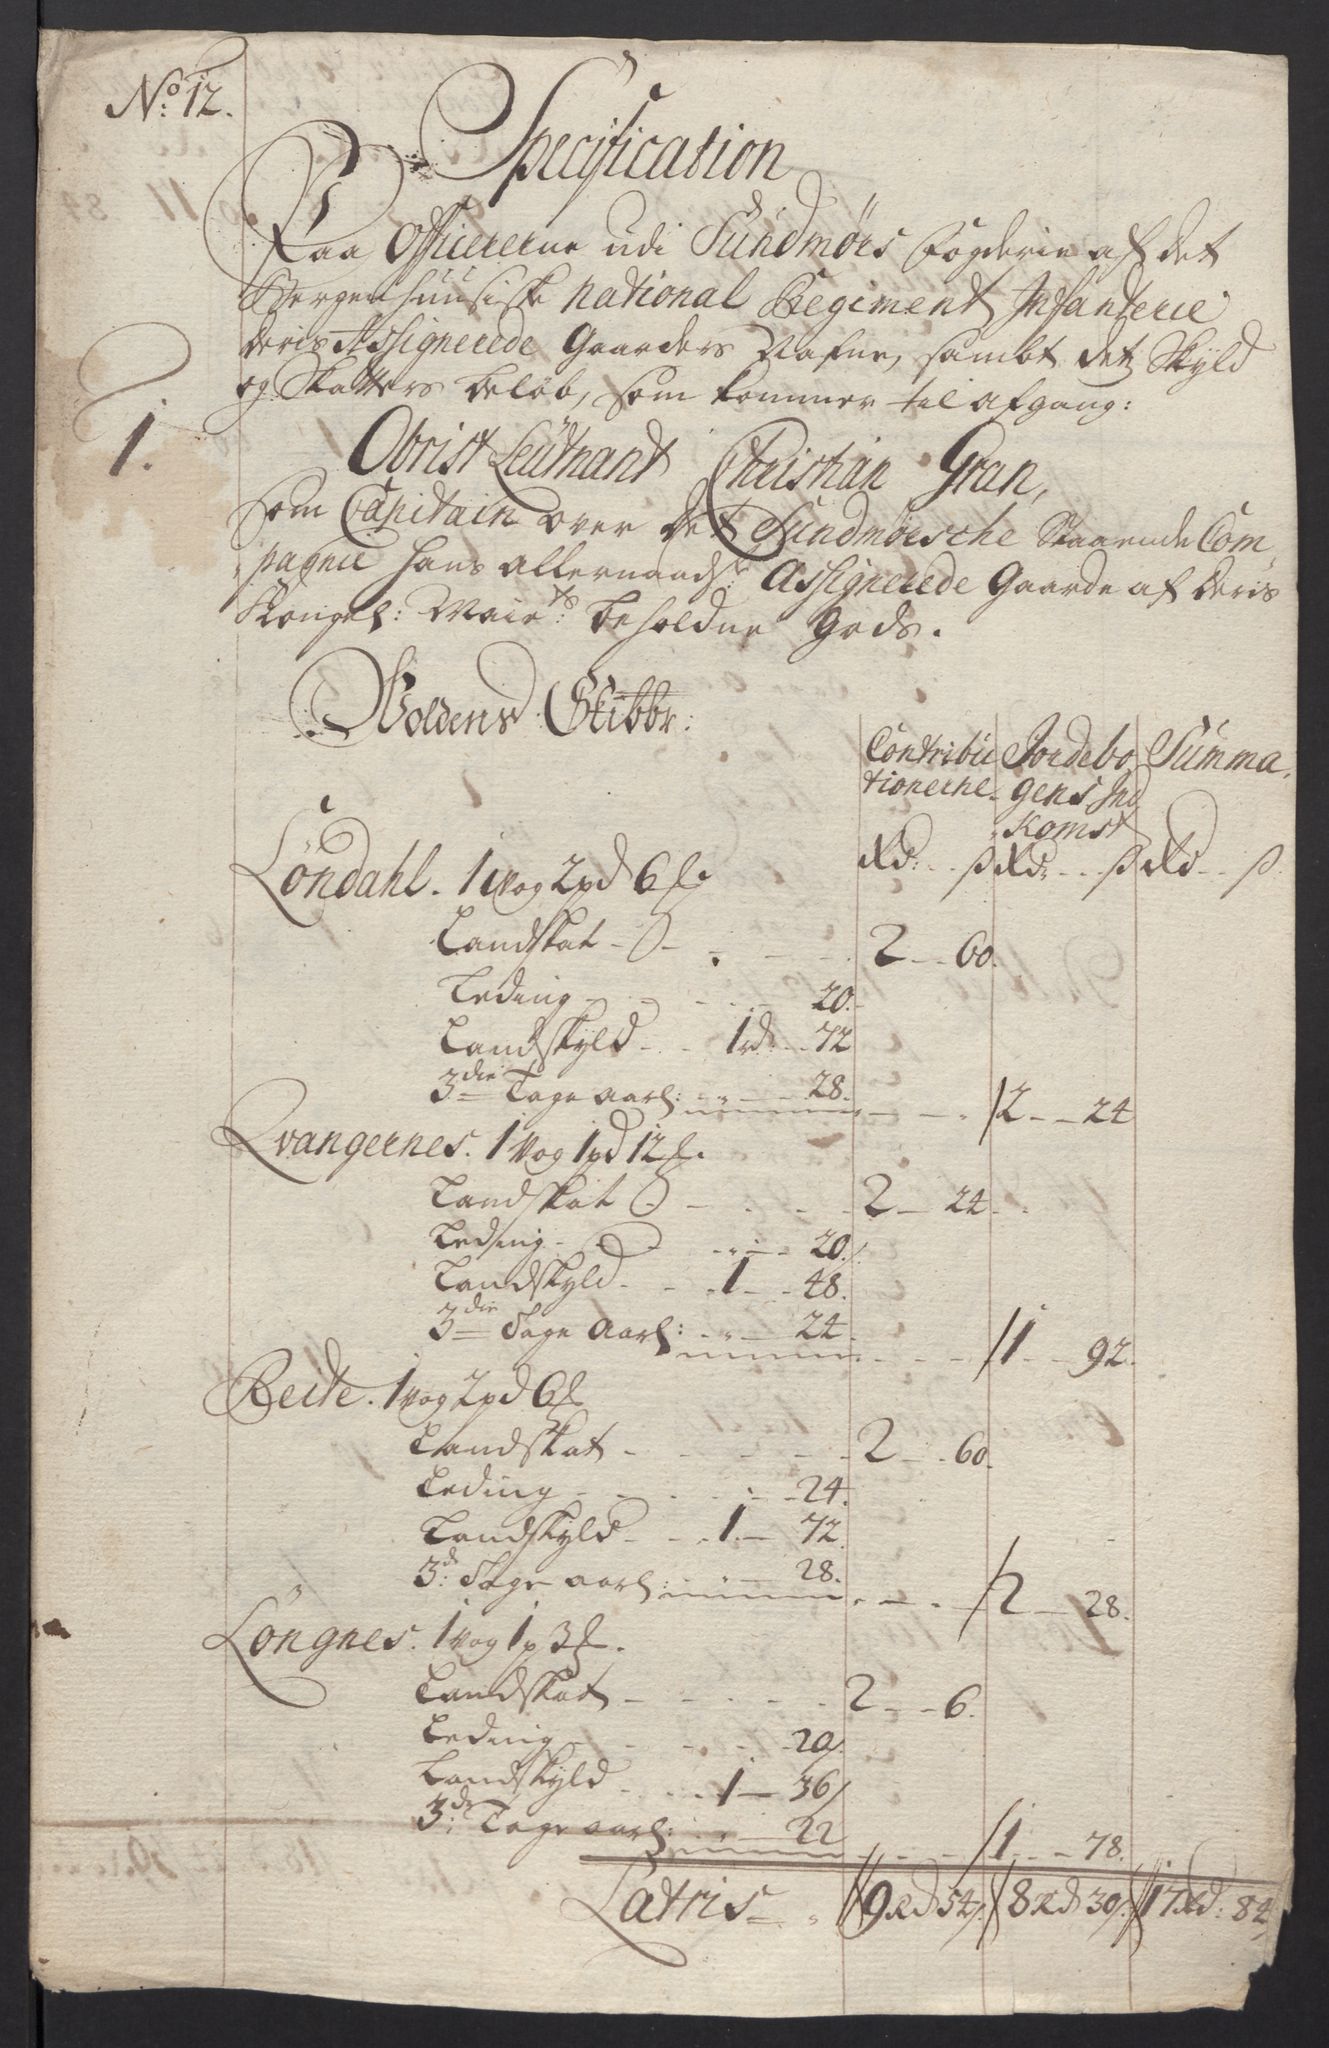 No: 12.
Specification
Paa Officererne udi Sundmørs fogderie af det
Bergenhuusiske national Regiment Infanterie
deris Assignerede Gaarders Nafne, sambt det Skyld
og Skatters beløb, som kommer til afgang:
1.
Obrist Leutnant Christian Gran,
som Capitain over det Sundmørsche Staaende Com
pagnie hans allernaadst: Assignerede Gaarde af deris
Kongel: Maits: beholdne Gods.
Woldens Skibbr:
Contribu Jordebo Summa.
tionerne. gens Ind
Komst
Rd: .. ß Rd: .. ß Rd .. ß
Løndahl. 1 Wog 2 pd 6 ℔.
Landskat - - - 2 - 60.
Leding - - - 20.
Landskyld - - 1 rd: - 72
3die Tage aarl: - " - 28. - - - 2 - 24
Qvangernes. 1 Wog 1 pd 12 ℔.
Landskat - - - 2 - 24.
Leding - - - " - 20.
Landskyld - - 1 - 48.
3die Tage Aarl: - " - 24. - - - 1 - 92.
Reite. 1 Wog 2 pd 6 ℔
Landskat - - - 2 - 60.
Leding - - - 24.
Landskyld - - 1 - 72.
3d: Tage aarl: - " - 28. - - - 2 - 28.
Løngnes. 1 Wog 1 p 3 ℔.
Landskat - - - 2 - 6.
Leding - - - 20.
Landskyld - - 1 - 36
3de: Tage aarl: " - 22 - - - 1 - 78.
Latris - " 9 Rd 54. 8 Rd 30. 17 Rd: 84